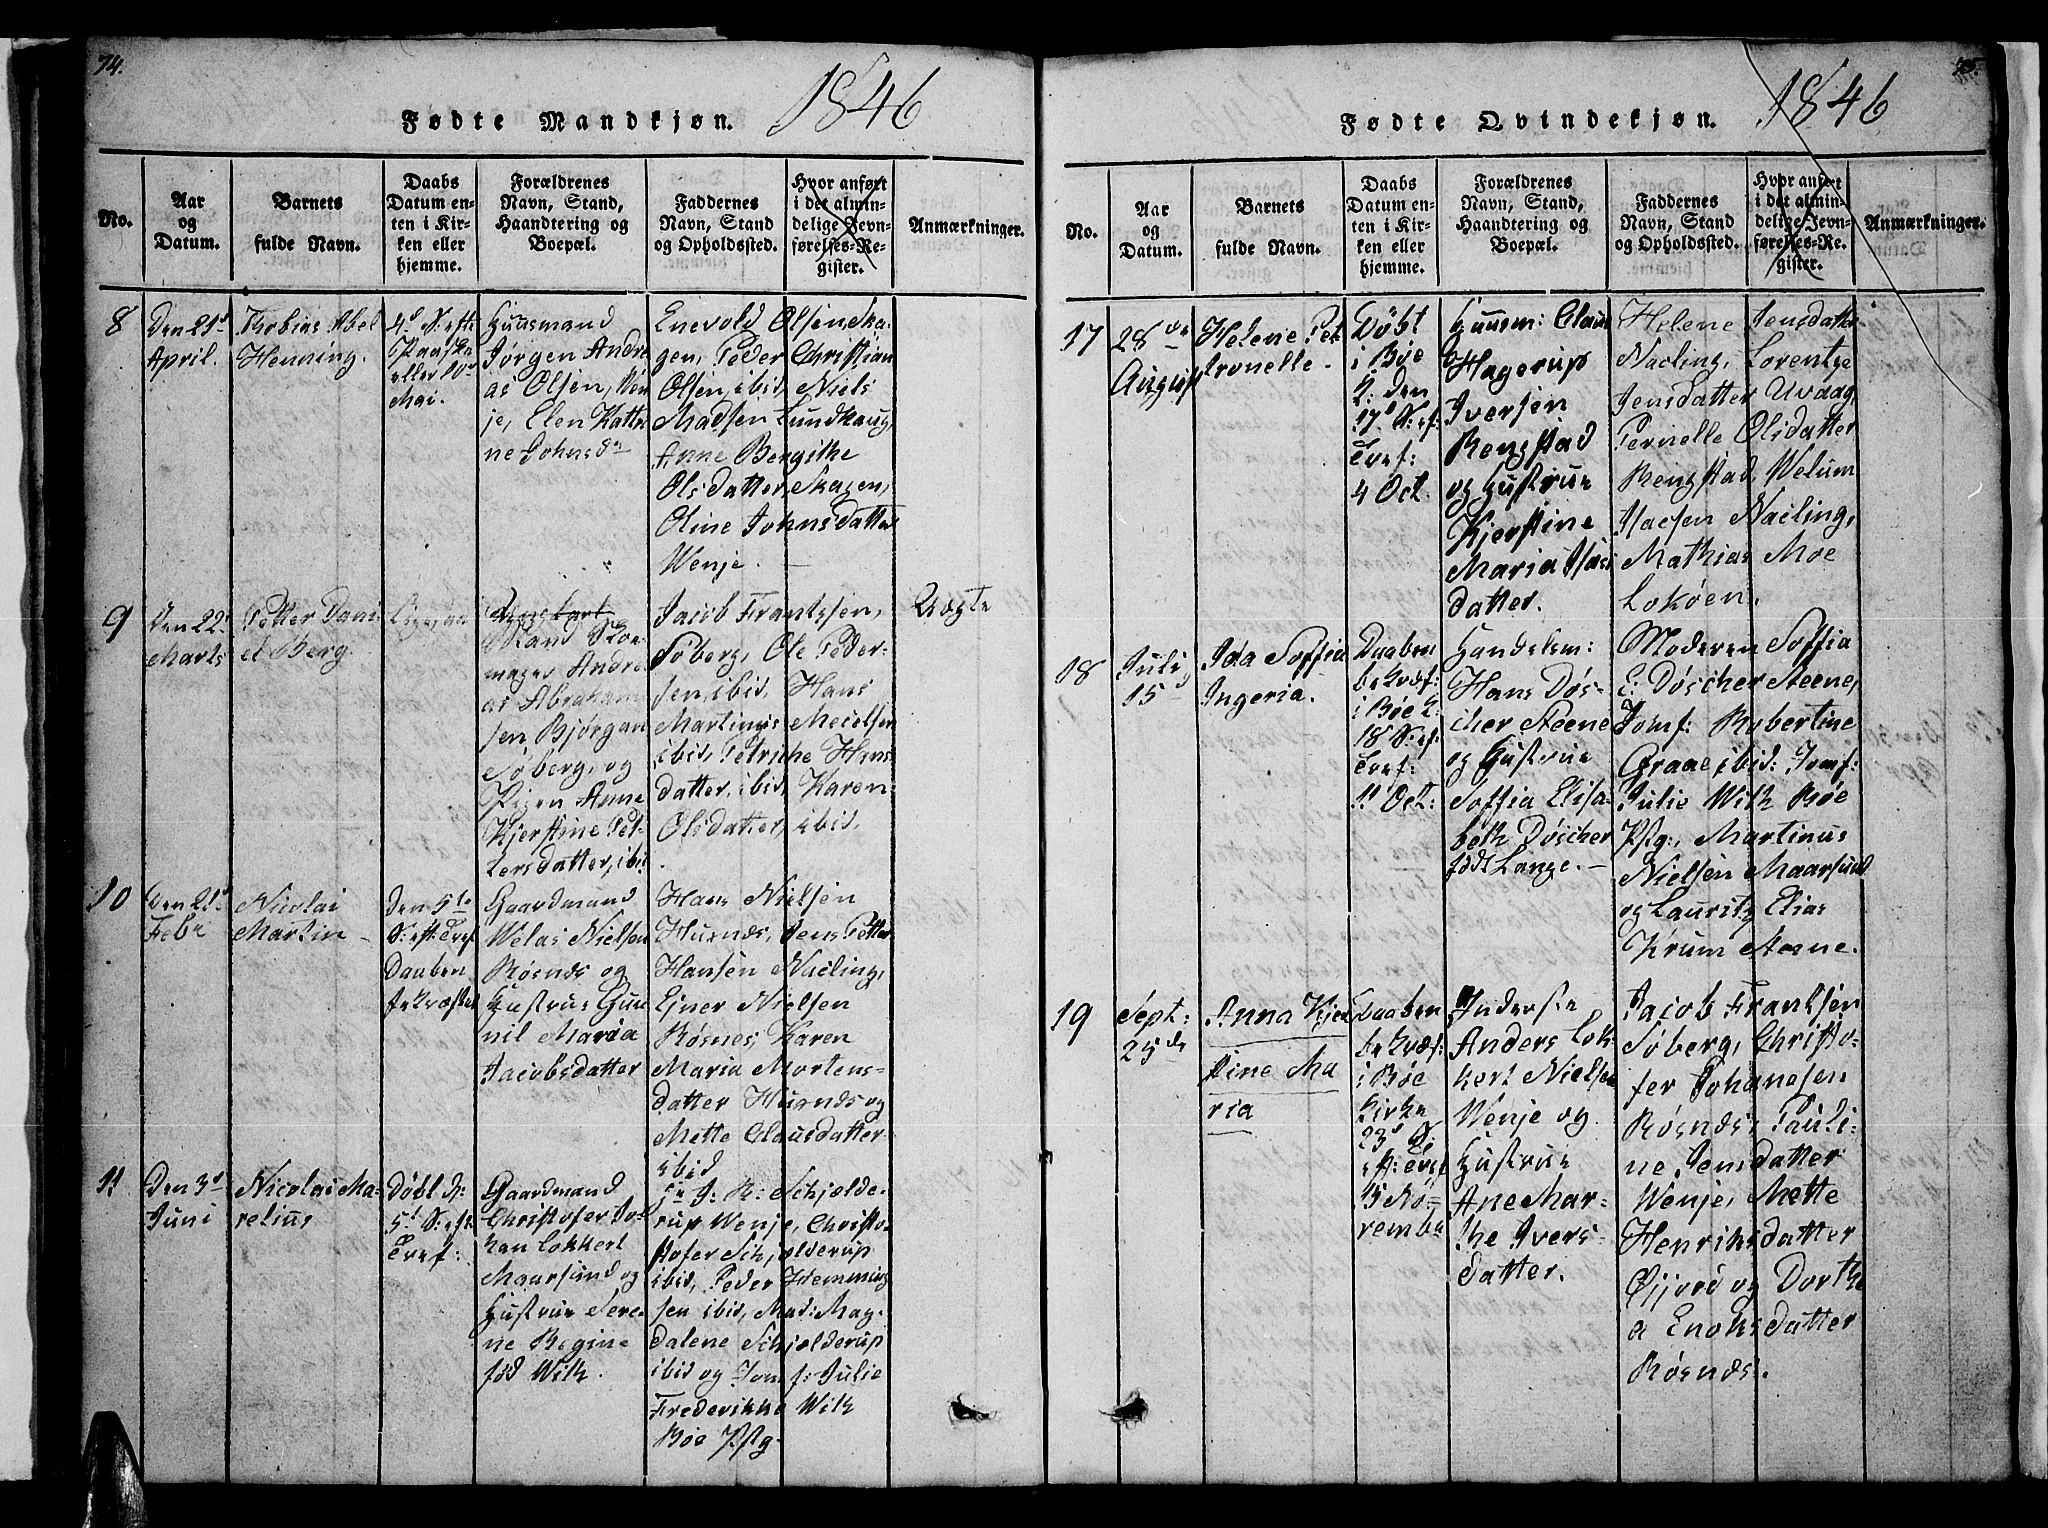 74.
Fødte Mandkjøn. 1846
No.
Aar
og
Datum.
Barnets
fulde Navn.
Daabs
Datum en-
ten i Kir-
ken eller
hjemme.
Forældrenes
Navn, Stand,
Haandtering og
Boepæl.
Faddernes
Navn, Stand
og Opholdssted.
Hvor anført
i det almin-
delige Jevn-
førelses-Re-
gister.
Anmærkninger.
8
Den 21d
April.
Thobias Abel
Henning.
4d S: efte
Paaske
eller 10de
Mai.
Huusmand
Jørgen Andre
as Olsen, Wen
je, Elen Kathr
ne Johnsdr
Enevold Olsen Ska-
gen, Peder Christian
Olsen, ibid, Niels
Madsen Lundhaug,
Anne Bergithe
Olsdatter, Skagen,
Oline Johnsdatter
Wenje.
9
Den 22
Marts
Petter Dani
el Berg.
Mand Skoe-
mager Andre
as Abraham
sen Bjørgan
Søberg, og
Pigen Anne
Kjerstine Pet-
tersdatter, ibi:
Jacob Frantssen,
Søberg, Ole Peder-
sen, ibid, Hans
Martinus Mecelsen
ibid, Petriche Hans
datter, ibid, Karen
Olsdatter, ibid,
Uægte
10
Den 21d
Febr
Nicolai
Martin
Den 5te
S: eft: Tref
Daaben
bekræftet
Gaardmand
Welas Nielsen
Røsnæs og
Hustrue Gun
nil Maria
Jacobsdatter
Hans Nielsen
Husnæs, Jens Petter
Hansen Nacling,
Ejner Nielsen
Røsnes, Karen
Maria Mortens-
datter Husnæs og
Mette Clausdatter
ibid
11
Den 3d
Juni
Nicolai Ma-
relius
Døbt d:
5d S: eft
Tref:
Gaardmand
Christofer Jo-
han Lokkert
Maarsund og
Hustrue Sere-
ne Regine
fød With.
Hr J. R: Schjelde-
rup Wenje, Christo-
stofer Schjelderup
ibid, Peder Hemming
sen ibid, Mad: Mag-
dalene Schjelderup
ibid og Jomf: Julie
Frederikke With
Bøe Pstg.
75.
Fødte Qvindekjøn. 1846
No.
Aar
og
Datum.
Barnets
fulde Navn.
Daabs
Datum en-
ten i Kir-
ken eller
hjemme.
Forældrenes
Navn, Stand,
Haandtering og
Boepæl.
Faddernes
Navn, Stand
og Opholdssted.
Hvor anført
i det almin-
delige Jevn-
førelses-Re-
gister.
Anmærkninger.
17
28de
August
Helene Pet
tronelle.
Døbt
i Bøe
K: den
17d S: ef:
Tref:
4 Oct.
Huusm: Claus
Hagerup
Iversen
Rengstad
og Hustrue
Kjerstine
Maria Isac
datter.
Helene Jensdatter
Nacling, Lorentze
Jensdatter Uvaag,
Pernelle Olsdatter
Rengstad, Welum
Isacsen Nacling,
Mathias Moe
Lokøen.
18
Juli
15d
Ida Soffia
Ingeria.
Daaben
bekræf:
i Bøe K.
18 S: ef:
Tref:
11 Oct:
Handelsm:
Hans Døs-
cher Steene
og Hustrue
Soffia Elisa-
beth Døscher
født Lange.
Moderen Soffia
E: Døscher Steene,
Jomf: Robertine
Graae, ibid: Jomf:
Julie With Bøe
Pstg:, Martinus
Nielsen Maarsund
og Lauritz Elias
Krum Steene.
19
Sept:
25de
Anna Kjer
stine Ma
ria
Daaben
bekræf:
i Bøe
Kirke
23d S:
eft: Tref
15 No-
vember
Inderste
Anders Lok-
kert Nielsen
Wenje og
Hustrue
Ane Mar-
the Ivers-
datter.
Jacob Frantsen
Søberg, Christo-
fer Johanesen
Røsnæs, Pauli-
ne Jensdatter
Wenje, Mette
Henriksdatter
Gjjord og Dorthe
a Enoksdatter
Røsnæs.